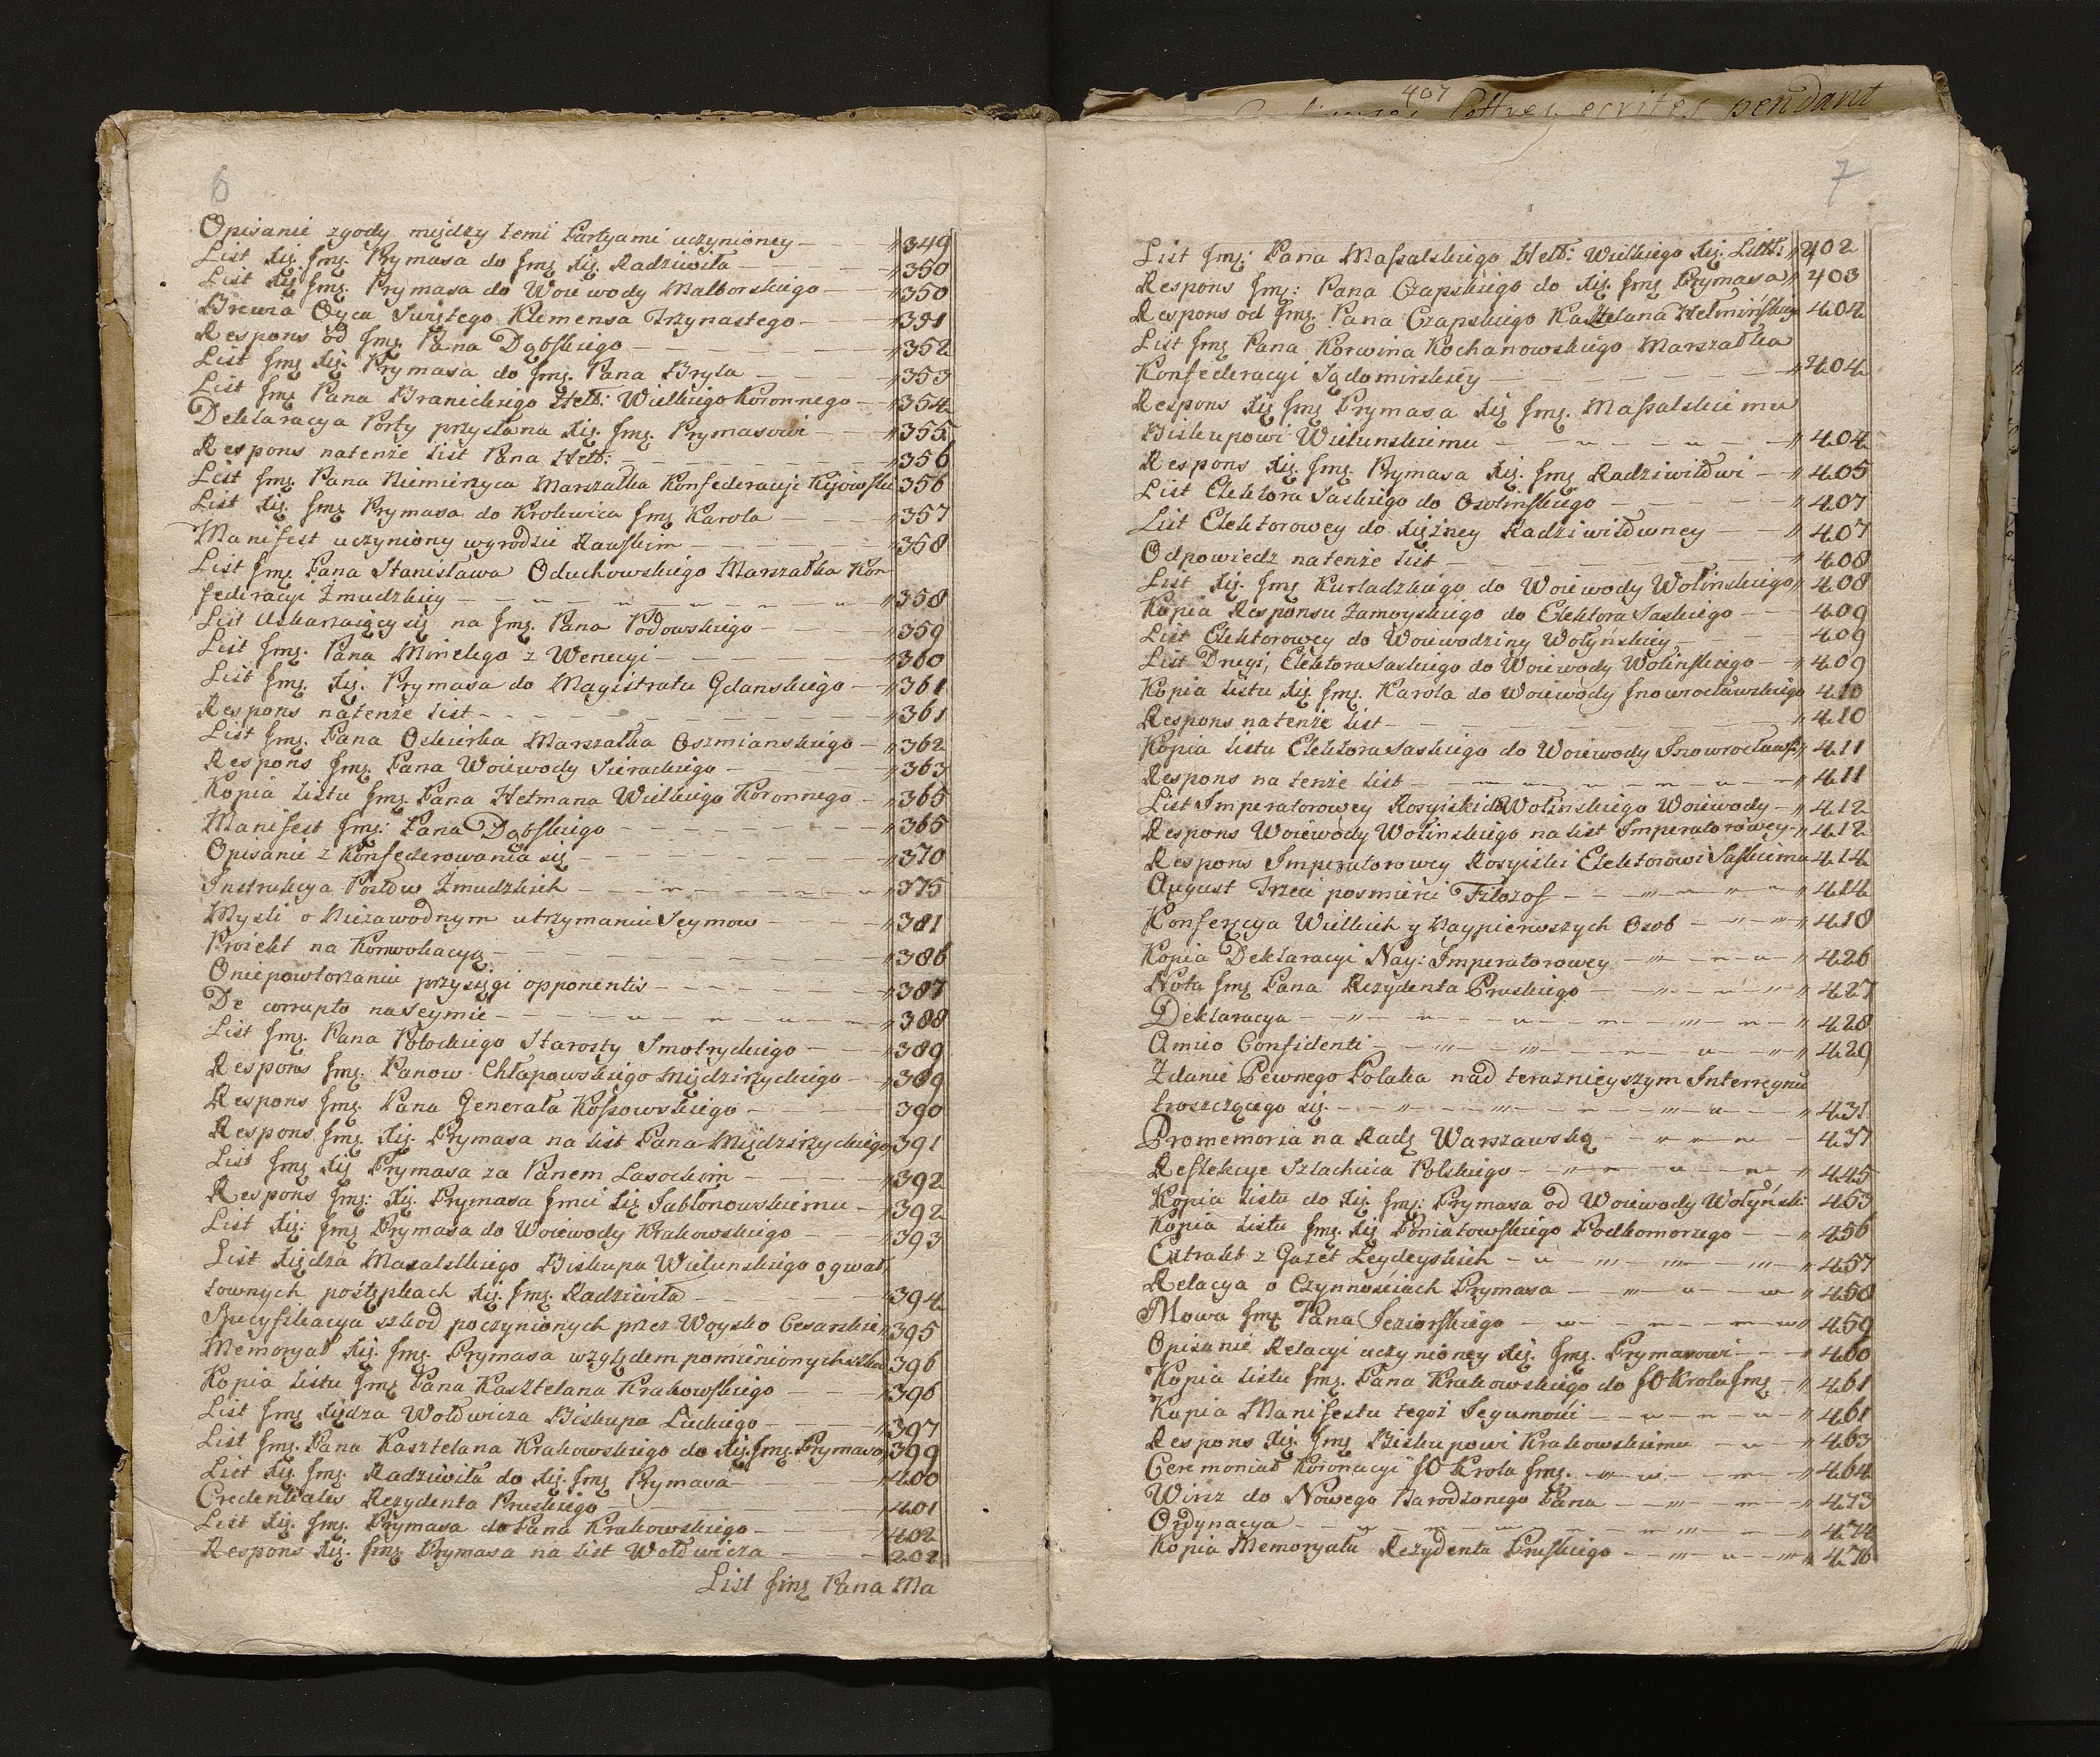 6
Opisanie zgody między temi Partyami uczynioney — — — " 349
List Xię. Jmę. Prymasa do Jmę Xię. Radziwiła — — " 350
List Xię Jmę. Prymasa do Woiewody Malborskiego — " 350
Brewia Oyca Swiętego Klemensa Trzynastego — — " 351
Respons od Jmę. Pana Dąbskiego — — " 352
List Jmę Xię. Prymasa do Jmę. Pana Bryla — — " 353
List Jmę Pana Branickiego Hetḿ: Wielkiego Koronnego — " 354
Deklaracya Porty przysłana Xię. Jmę. Prymasowi — " 355
Respons natenże list Pana Hetḿ: — — " 356
List Jmę. Pana Niemierzyca Marszałka Konfederacyi Kijowskie 356
List Xię. Jmę Prymasa do Krolewica Jmę Karola — " 357
Manifest uczyniony wgrodzie Rawskim — — " 358
List Jmę. Pana Stanisława Oduchowskiego Marszałka Kon
federacyi Żmudzkiey — — " 358
List Uskarzaiący się na Jmę. Pana Podowskiego — — " 359
List Jmę. Pana Minelego z Wenecyi — — " 360
List Jmę. Xię. Prymasa do Magistratu Gdanskiego — " 361
Respons natenże list — — " 361
List Jmę. Pana Oskierka Marszałka Oszmianskiego — " 362
Respons Jmę. Pana Woiewody Sieradkiego — — " 363
Kopia listu Jmę. Pana Hetmana Wielkiego Koronnego — " 365
Manifest Jmę: Pana Dąbskiego — — " 365
Opisanie z Konfederowania się — — " 370
Instrukcya Posłów Żmudzkich — — " 375
Mysli o Niezawodnym utrzymaniu Seymow — — " 381
Proiekt na Konwokacyą — — " 386
Oniepowtorzaniu przysięgi opponentis — — " 387
De corrupto naSeymie — — " 388
List Jmę. Pana Potockiego Starosty Smotryckiego — — " 389
Respons Jmę. Panow Chłapowskiego Międzirzyckiego — " 389
Respons Jmę. Pana Generała Kossowskiego — — " 390
Respons Jmę. Xię. Prymasa na list Pana Międzirzyckiego 391
List Jmę Xię Prymasa za Panem Lasockim — — " 392
Respons Jmę: Xię. Prymasa Jmci Xię Jabłonowskiemu — " 392
List Xię: Jmę Prymasa do Woiewody Krakowskiego — " 393
List Xiędza Masalskiego Biskupa Wielunskiego o gwał
townych postępkach Xię. Jmę. Radziwiła — — " 394
Specyfikacya szkod poczynionych przez Woysko Cesarskie " 395
Memoryał Xię. Jmę. Prymasa względem pomienionych szkod 396
Kopia listu Jmę Pana Kasztelana Krakowskiego — — " 396
List Jmę Xiędza Wołłwicza Biskupa Łuckiego — — " 397
List Jmę. Pana Kasztelana Krakowskiego do Xię. Jmę. Prymasa 399
List Xię. Jmę. Radziwiła do Xię. Jmę Prymasa — — " 400
Credentiales Rezydenta Pruskiego — — " 401
List Xię. Jmę. Prymasa do Pana Krakowskiego — — " 402
Respons Xię. Jmę Prymasa na list Wołłwicza — — 202
List Jmę Pana Ma
407
lettres ecrites pendant
7
List Jmę: Pana Massalskiego Hetḿ: Wielkiego Xię. Litt: " 402
Respons Jmę: Pana Czapskiego do Xię. Jmę Prymasa " 403
Respons od Jmę. Pana Czapskiego Kasztelana Hełminskieg 404
List Jmę Pana Korwina Kochanowskiego Marszałka
Konfederacyi Sędomirskiey — — " 404
Respons Xię Jmę Prymasa Xię Jmę. Massalskiemu
Biskupowi Wielunskiemu — — " 404
Respons Xię. Jmę. Prymasa Xię. Jmę Radziwiłowi — " 405
List Elektora Saskiego do Osolinskiego — — " 407
List Elektorowey do Xiężney Radziwiłłowney — " 407
Odpowiedz natenże list — — " 408
List Xię. Jmę Kurladzkiego do Woiewody Wolinskiego " 408
Kopia Responsu Zamoyskiego do Elektora Saskiego — 409
List Elektorowey do Woiewodziny Wołyńskiey — — 409
List Drugi, Elektora Saskiego do Woiewody Wolinskiego — " 409
Kopia listu Xię. Jmę. Karola do Woiewody Jnowrocławskiego 410
Respons natenże list — — " 410
Kopia listu Elektora Saskiego do Woiewody Jnowrocławsk: " 411
Respons na tenże list — — " 411
List Imperatorowey Rosyiski do Wolinskiego Woiewody — " 412
Respons Woiewody Wolinskiego na list Imperatorowey — " 412
Respons Imperatorowey Rosyiski Elektorowi Saskiemu 414
August Trzeci posmierci Filozof — — " 414
Konferęcya Wielkich y Naypierwszych Osob — — " 418
Kopia Deklaracyi Nay: Imperatorowey — — " 426
Nota Jmę Pana Rezydenta Pruskiego — — " 427
Deklaracya — — " 428
Amico Confidenti — — " 429
Zdanie Pewnego Polaka nad teraznieyszym Interregnu
troszczącego się. — — " 431
Promemoria na Radę Warszawską — — 437
Reflekcye Szlachcica Polskiego — — " 445
Kopia listu do Xię. Jmę: Prymasa od Woiewody Wołyński: 453
Kopia listu Jmę. Xię Poniatowskiego Podkomorzego — — " 456
Extrakt z Gazet Leydeyskich — — " 457
Relacya o Czynnościach Prymasa — — " 458
Mowa Jmę. Pana Jezierskiego — — " 459
Opisanie Relacyi uczynioney Xię. Jmę. Prymasowi — — " 460
Kopia listu Jmę. Pana Krakowskiego do JO Krola Jmę — " 461
Kopia Manifestu tegoż Jegomości — — " 461
Respons Xię. Jmę Biskupowi Krakowskiemu — — " 463
Ceremoniał Koronacyi JO Krola Jmę. — — " 464
Winsz do Nowego Narodzonego Pana — — " 473
Ordynacya — — " 474
Kopia Memoryału Rezydenta Pruskiego — — " 476